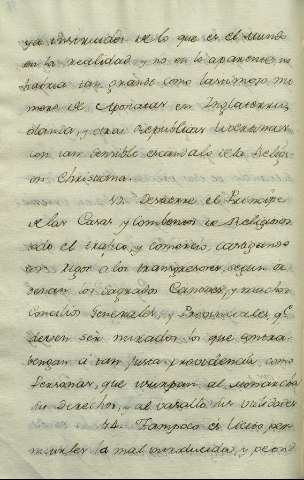 ya instruidos de lo que es el mundo
en la realidad y no en lo aparente, no
habria tan grande como lastimoso nu
mero de Apostatas en Inglaterra,
Olanda, y otras Republicas
con tan sensible escandalo de la Religi
on Christiana.
13. Destierre el Principe
de las Casas y Combentos de Religiosos
todo el trafico, y comercio, castigando
con rigor a los transgresores, segun or
denan los Sagrados Canones, y muchos
Concilios Generales, y Provinciales, q.e
deven ser mirados los que contra
bengan a tan justa providencia como
Personas, que usurpan al Monarcha
su derecho, y al vasallo sus utilidades
14. Tampoco es licito per
mitirles la mal introducida, y